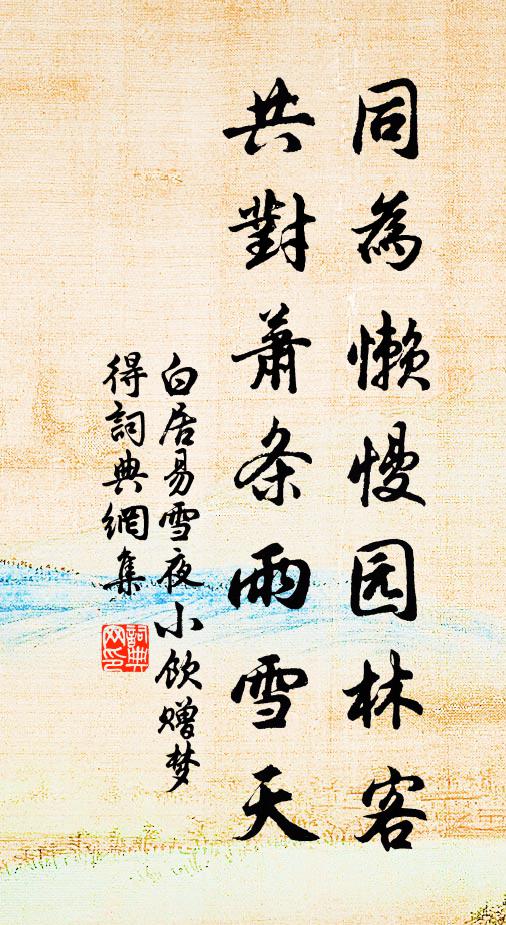 同為懒慢园林客
共對蕭条雨雪天
白居易雪夜小饮赠梦
得詞典網集
詞典
网印